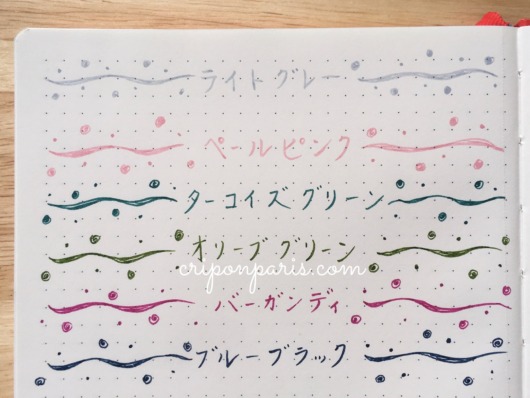 ライトグレー
ペールピンク
ターコイズグリーン
オリーブグリーン
criponparis.com
バーガンディ
ブルーブラック